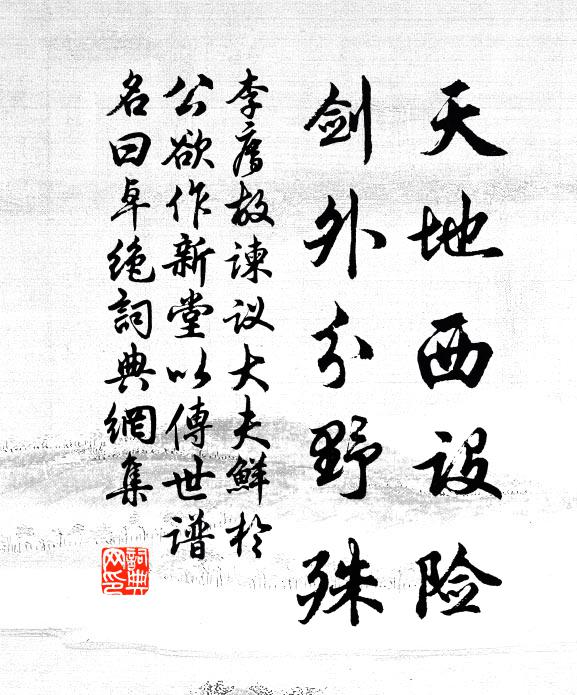 天地西设险
剑外分野殊
李廌故谏议大夫鲜于
公欲作新堂以传世谱
名曰卓绝詞典網集
詞典网印